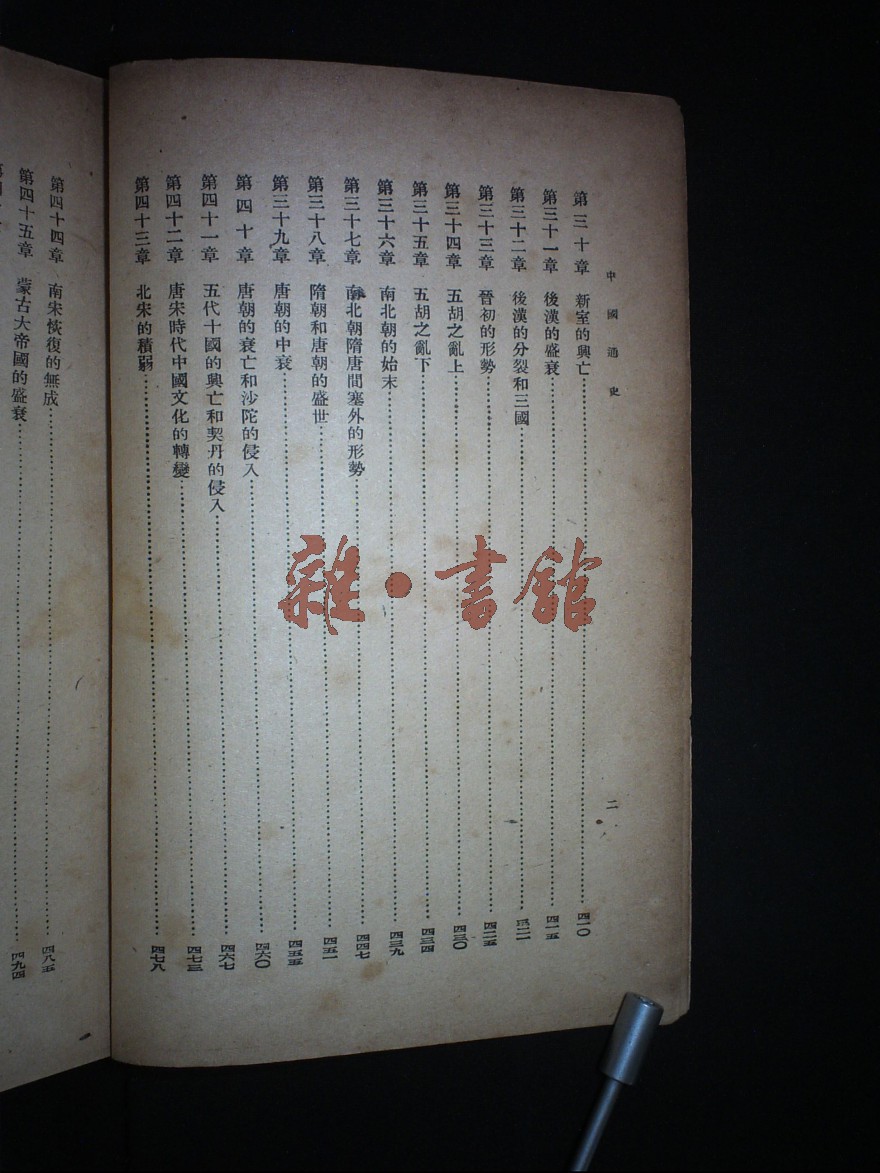 中國通史
二
第三十章 新室的興亡……四一〇
第三十一章 後漢的盛衰……四一五
第三十二章 後漢的分裂和三國……二一
第三十三章 晉初的形勢……四二五
第三十四章 五胡之亂上……四三〇
第三十五章 五胡之亂下……四三四
第三十六章 南北朝的始末……四三九
第三十七章 南北朝隋唐間塞外的形勢……四四七
第三十八章 隋朝和唐朝的盛世……四五一
第三十九章 唐朝的中衰……四五五
第四十章 唐朝的衰亡和沙陀的侵入……四六〇
第四十一章 五代十國的興亡和契丹的侵入……四六七
第四十二章 唐宋時代中國文化的轉變……四七三
第四十三章 北宋的積弱……四七八
第四十四章 南宋恢復的無成……四八五
第四十五章 蒙古大帝國的盛衰……四九四
雜·書館